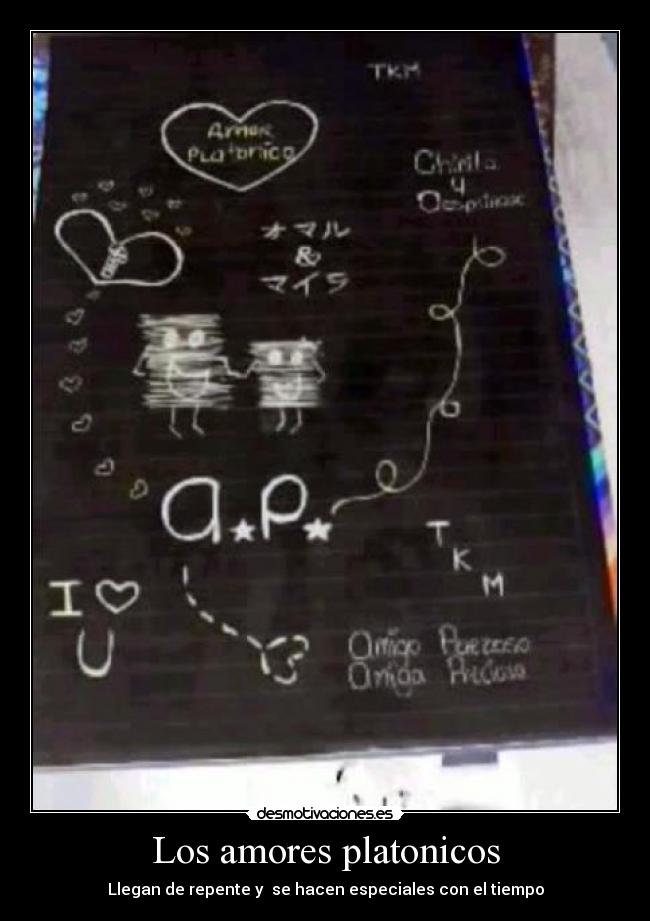 TKM
Amor
PLatoniico
y
オマル
&
マイラ
a.P.
T
K
M
I ♡
U
Amigo
Amiga
desmotivaciones.es
Los amores platonicos
Llegan de repente y se hacen especiales con el tiempo